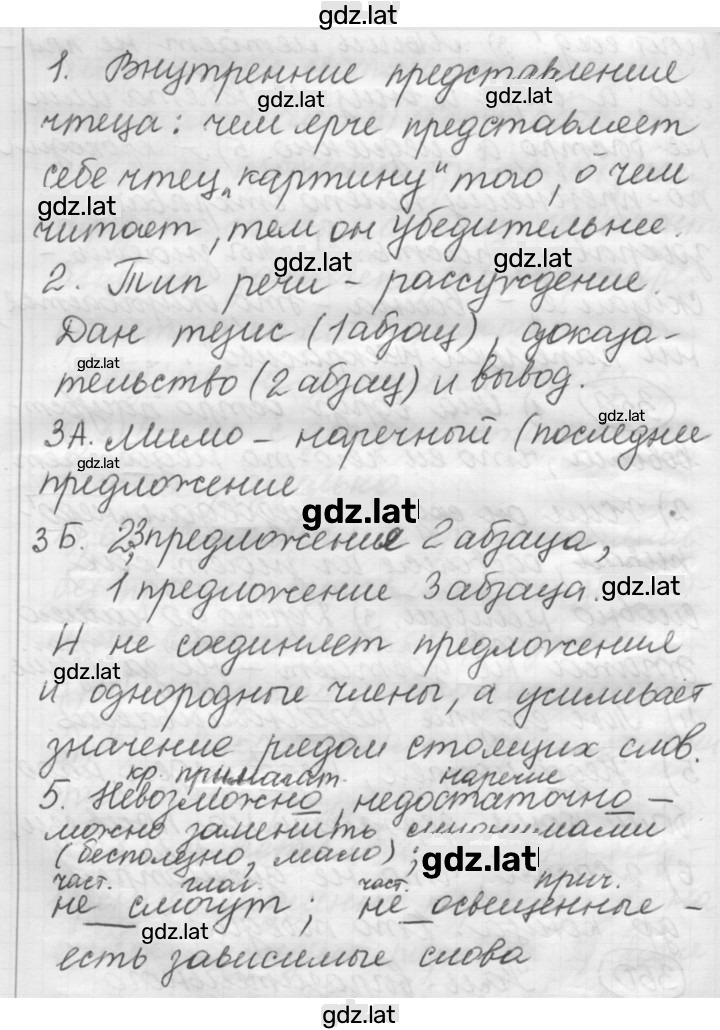 gdz.lat
1. Внутренние представление
gdz.lat gdz.lat
чтеца: чем ярче представляет
себе чтец „картину“ того, о чем
gdz.lat
читает, тем он убедительнее.
gdz.lat gdz.lat
2. Тип речи – рассуждение.
Дан тезис (1 абзац), доказа-
gdz.lat
тельство (2 абзац) и вывод.
gdz.lat
3А. Мимо – наречный (последнее
gdz.lat
предложение
gdz.lat
3Б. 2,3 предложение 2 абзаца,
1 предложение 3 абзаца.
gdz.lat
И не соединяет предложения
gdz.lat
и однородные члены, а усиливает
значение рядом стоящих слов.
кр. прилагат. наречие
5. Невозможно, недостаточно –
можно заменить синонимами
(бесполезно, мало);
gdz.lat
част. глаг. част. прич.
не смогут; не освещенные –
gdz.lat
есть зависимые слова
gdz.lat